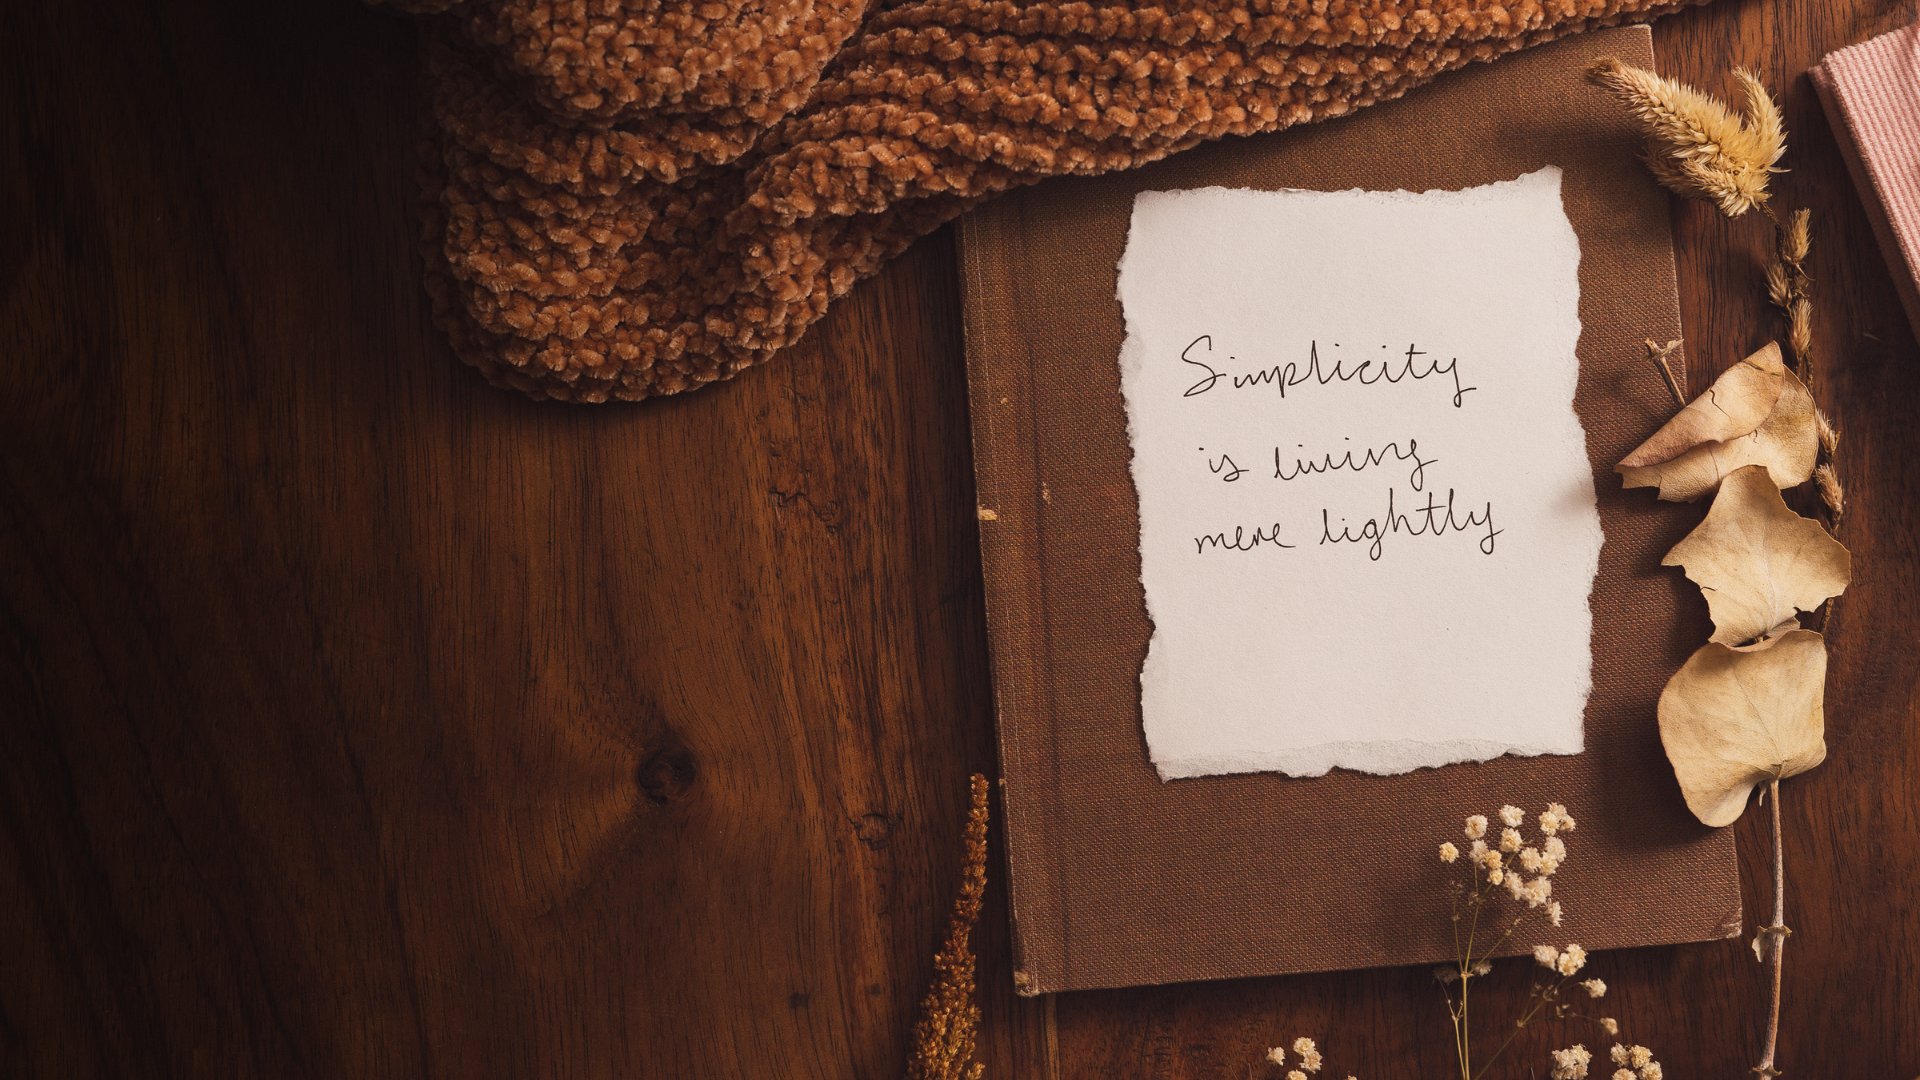 Simplicity
is living
more lightly